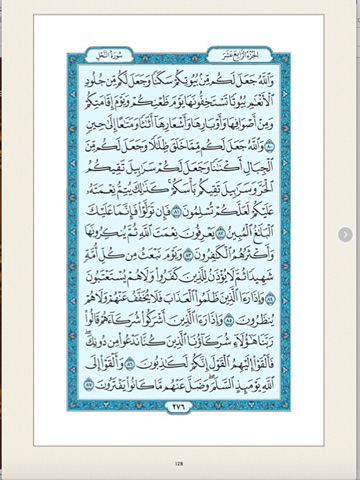 سورة النحل
الجزء الرابع عشر
وَٱللَّهُ جَعَلَ لَكُم مِّنۢ بُيُوتِكُمْ سَكَنًا وَجَعَلَ لَكُم مِّن جُلُودِ
ٱلْأَنْعَـٰمِ بُيُوتًا تَسْتَخِفُّونَهَا يَوْمَ ظَعْنِكُمْ وَيَوْمَ إِقَامَتِكُمْ
وَمِنْ أَصْوَافِهَا وَأَوْبَارِهَا وَأَشْعَارِهَآ أَثَـٰثًا وَمَتَـٰعًا إِلَىٰ حِينٍ
٨٠ وَٱللَّهُ جَعَلَ لَكُم مِّمَّا خَلَقَ ظِلَـٰلًا وَجَعَلَ لَكُم مِّنَ
ٱلْجِبَالِ أَكْنَـٰنًا وَجَعَلَ لَكُمْ سَرَٰبِيلَ تَقِيكُمُ
ٱلْحَرَّ وَسَرَٰبِيلَ تَقِيكُم بَأْسَكُمْ ۚ كَذَٰلِكَ يُتِمُّ نِعْمَتَهُۥ
عَلَيْكُمْ لَعَلَّكُمْ تُسْلِمُونَ ٨١ فَإِن تَوَلَّوْا۟ فَإِنَّمَا عَلَيْكَ
ٱلْبَلَـٰغُ ٱلْمُبِينُ ٨٢ يَعْرِفُونَ نِعْمَتَ ٱللَّهِ ثُمَّ يُنكِرُونَهَا
وَأَكْثَرُهُمُ ٱلْكَـٰفِرُونَ ٨٣ وَيَوْمَ نَبْعَثُ مِن كُلِّ أُمَّةٍ
شَهِيدًا ثُمَّ لَا يُؤْذَنُ لِلَّذِينَ كَفَرُوا۟ وَلَا هُمْ يُسْتَعْتَبُونَ
٨٤ وَإِذَا رَءَا ٱلَّذِينَ ظَلَمُوا۟ ٱلْعَذَابَ فَلَا يُخَفَّفُ عَنْهُمْ وَلَا هُمْ
يُنظَرُونَ ٨٥ وَإِذَا رَءَا ٱلَّذِينَ أَشْرَكُوا۟ شُرَكَآءَهُمْ قَالُوا۟
رَبَّنَا هَـٰٓؤُلَآءِ شُرَكَآؤُنَا ٱلَّذِينَ كُنَّا نَدْعُوا۟ مِن دُونِكَ ۖ
فَأَلْقَوْا۟ إِلَيْهِمُ ٱلْقَوْلَ إِنَّكُمْ لَكَـٰذِبُونَ ٨٦ وَأَلْقَوْا۟ إِلَى
ٱللَّهِ يَوْمَئِذٍ ٱلسَّلَمَ ۖ وَضَلَّ عَنْهُم مَّا كَانُوا۟ يَفْتَرُونَ ٨٧
٢٧٦
128